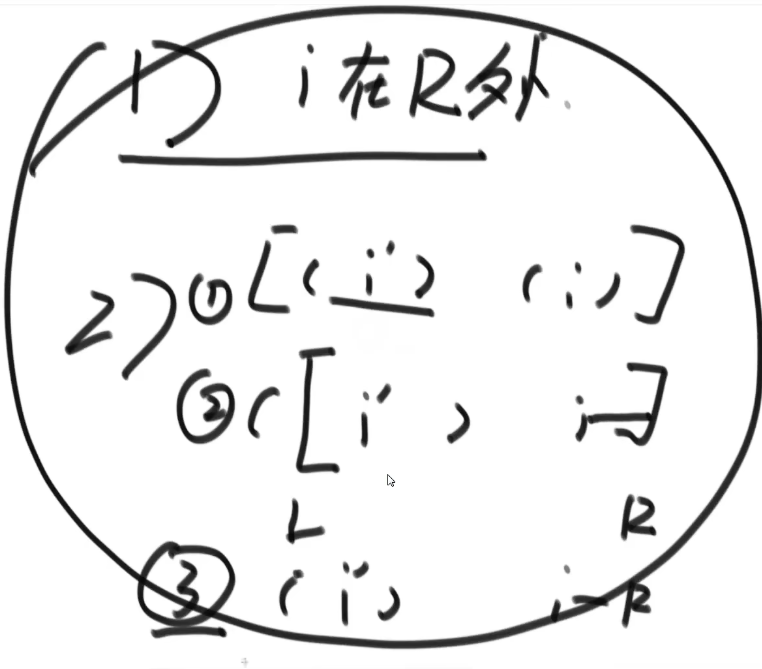 (1) i在R外
2) ① [(i') (i)]
② ([i') i—]
L R
③ (i') i—R